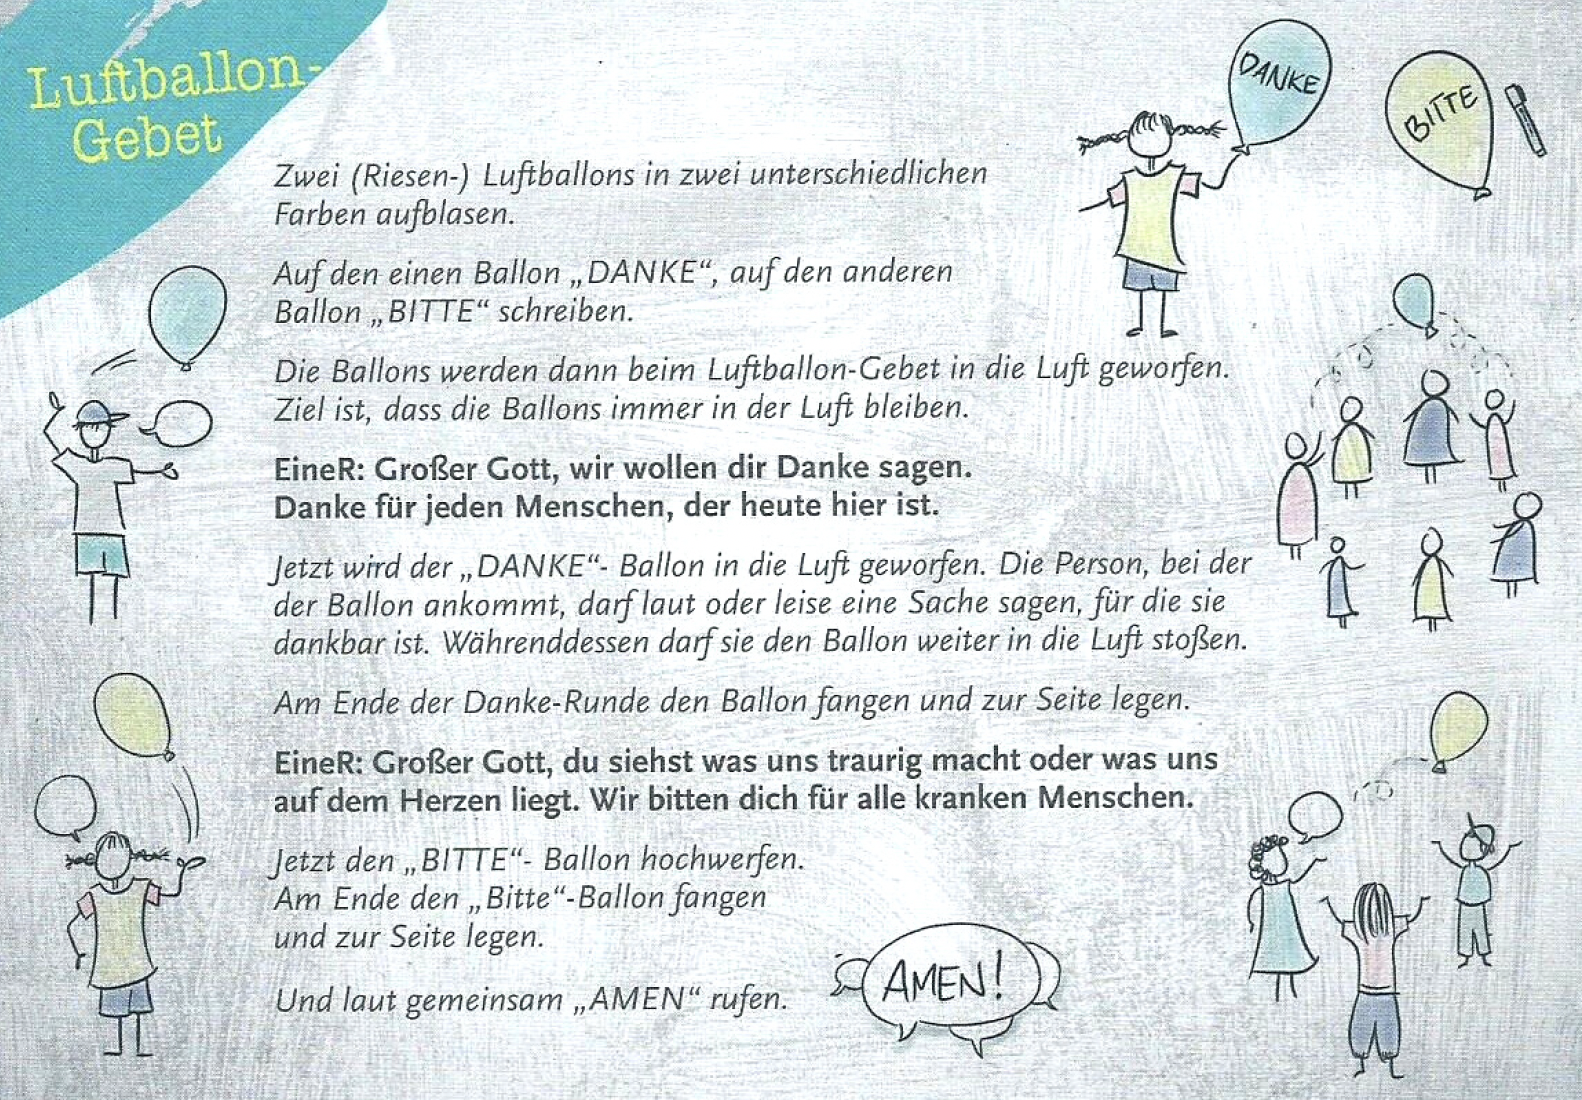 Luftballon-
Gebet
DANKE
BITTE
Zwei (Riesen-) Luftballons in zwei unterschiedlichen
Farben aufblasen.
Auf den einen Ballon „DANKE“, auf den anderen
Ballon „BITTE“ schreiben.
Die Ballons werden dann beim Luftballon-Gebet in die Luft geworfen.
Ziel ist, dass die Ballons immer in der Luft bleiben.
EineR: Großer Gott, wir wollen dir Danke sagen.
Danke für jeden Menschen, der heute hier ist.
Jetzt wird der „DANKE“- Ballon in die Luft geworfen. Die Person, bei der
der Ballon ankommt, darf laut oder leise eine Sache sagen, für die sie
dankbar ist. Währenddessen darf sie den Ballon weiter in die Luft stoßen.
Am Ende der Danke-Runde den Ballon fangen und zur Seite legen.
EineR: Großer Gott, du siehst was uns traurig macht oder was uns
auf dem Herzen liegt. Wir bitten dich für alle kranken Menschen.
Jetzt den „BITTE“- Ballon hochwerfen.
Am Ende den „Bitte“-Ballon fangen
und zur Seite legen.
Und laut gemeinsam „AMEN“ rufen.
AMEN!